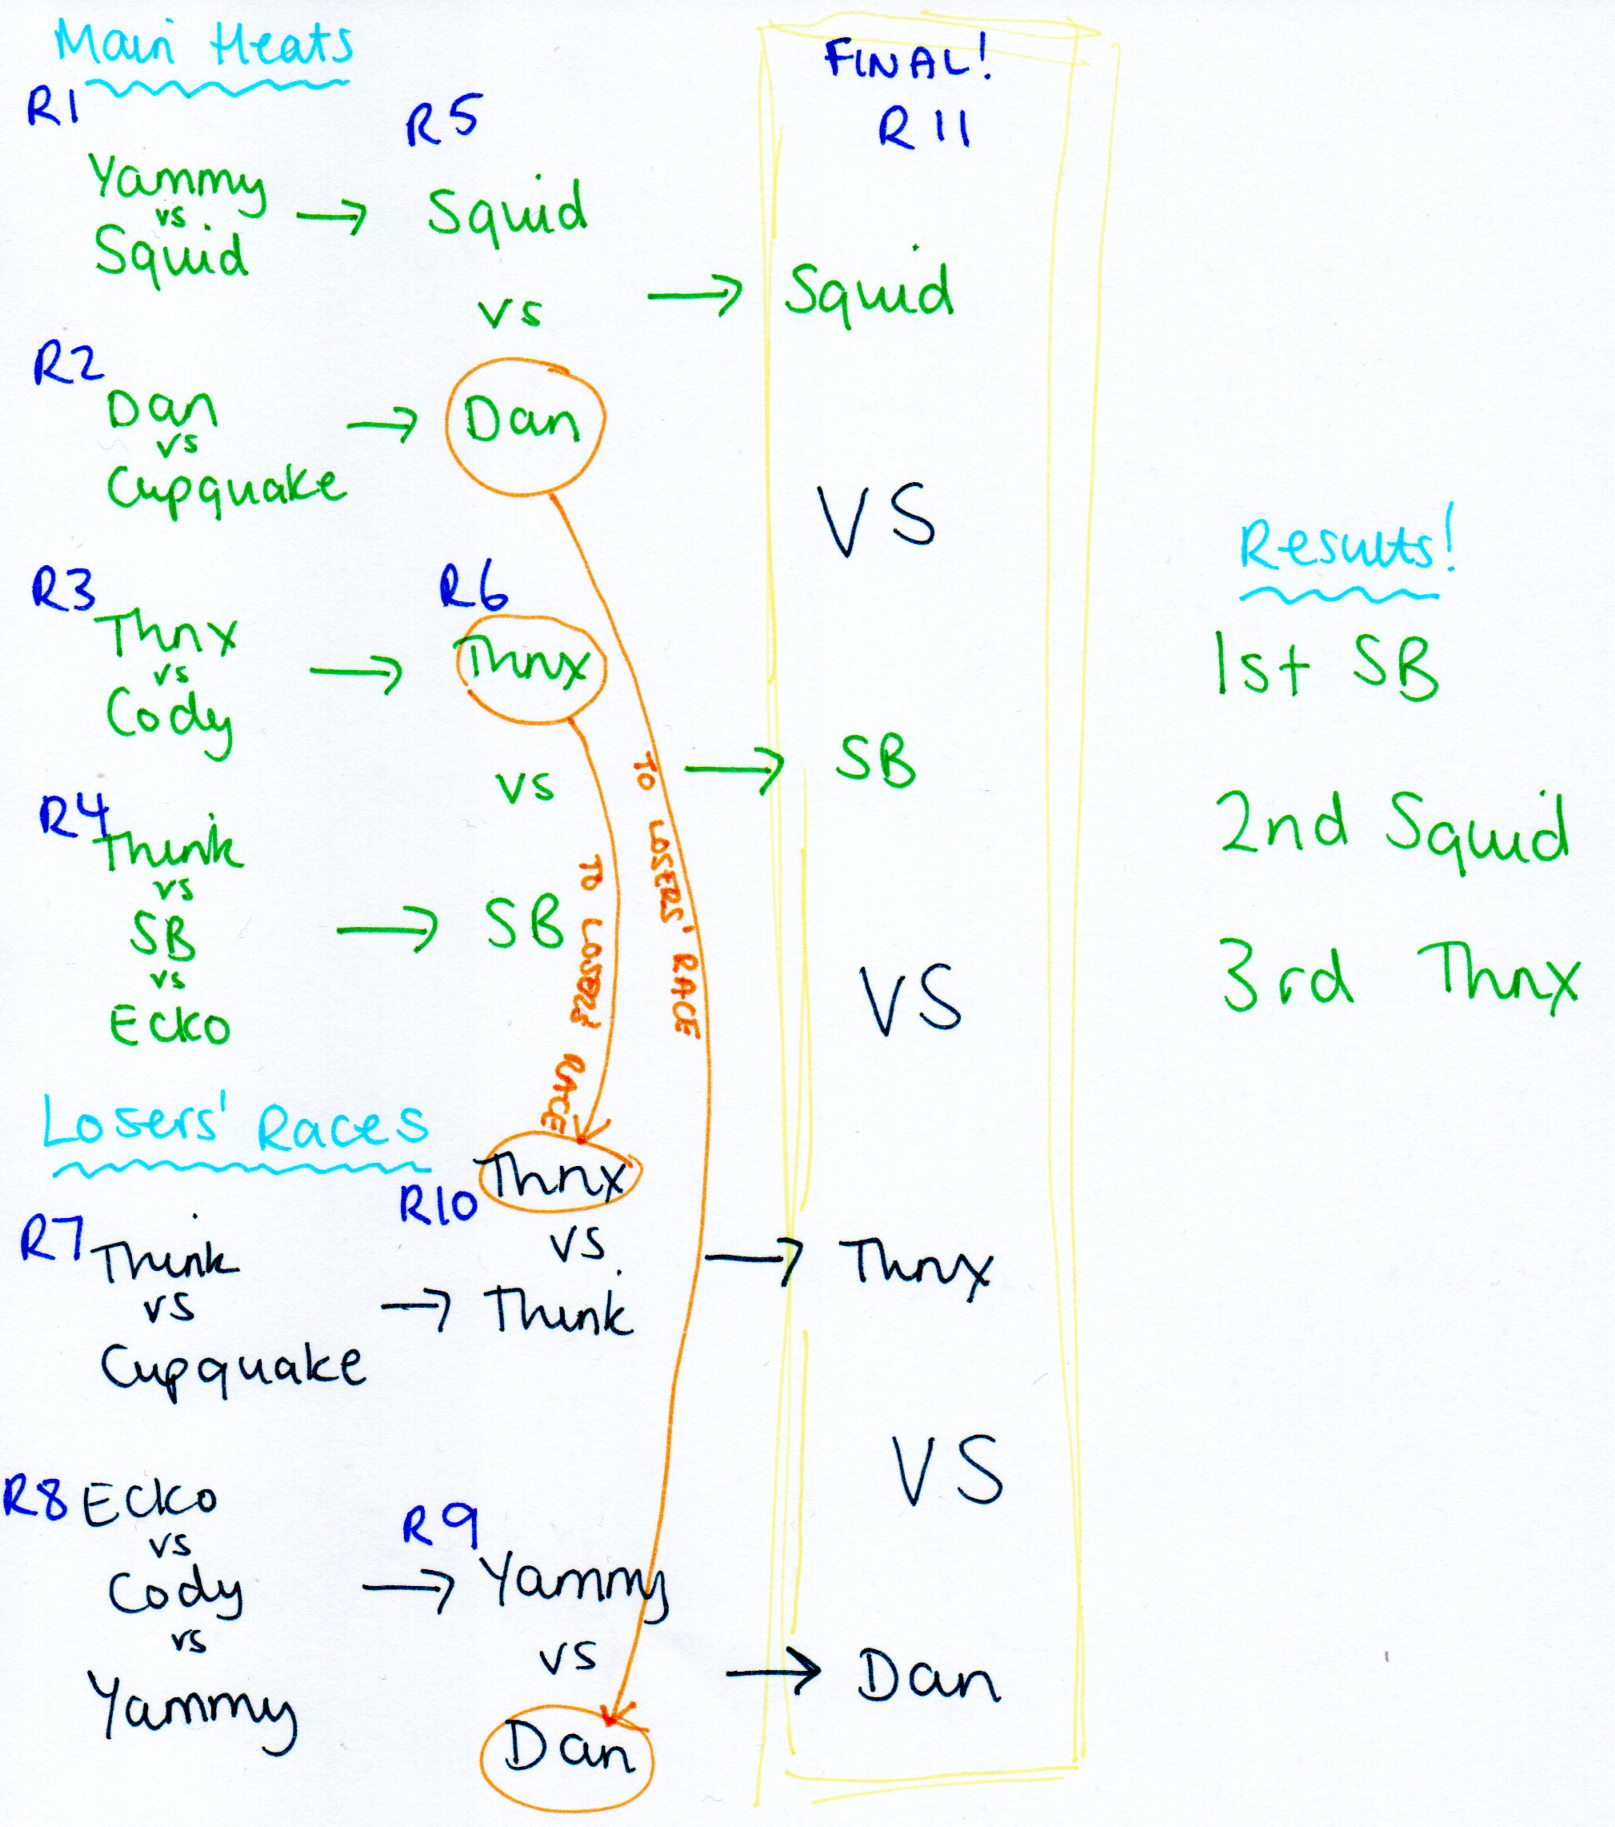 Main Heats
R1
Yammy
vs
Squid
R2
Dan
vs
Cupquake
R3
Thnx
vs
Cody
R4
Think
vs
SB
vs
Ecko
R5
Squid
vs
Dan
R6
Thnx
vs
SB
TO LOSERS' RACE
TO LOSERS' RACE
Losers' Races
R7
Think
vs
Cupquake
R8
Ecko
vs
Cody
vs
Yammy
R10
Thnx
vs
Think
R9
Yammy
vs
Dan
FINAL!
R11
Squid
VS
SB
VS
Thnx
VS
Dan
Results!
1st SB
2nd Squid
3rd Thnx